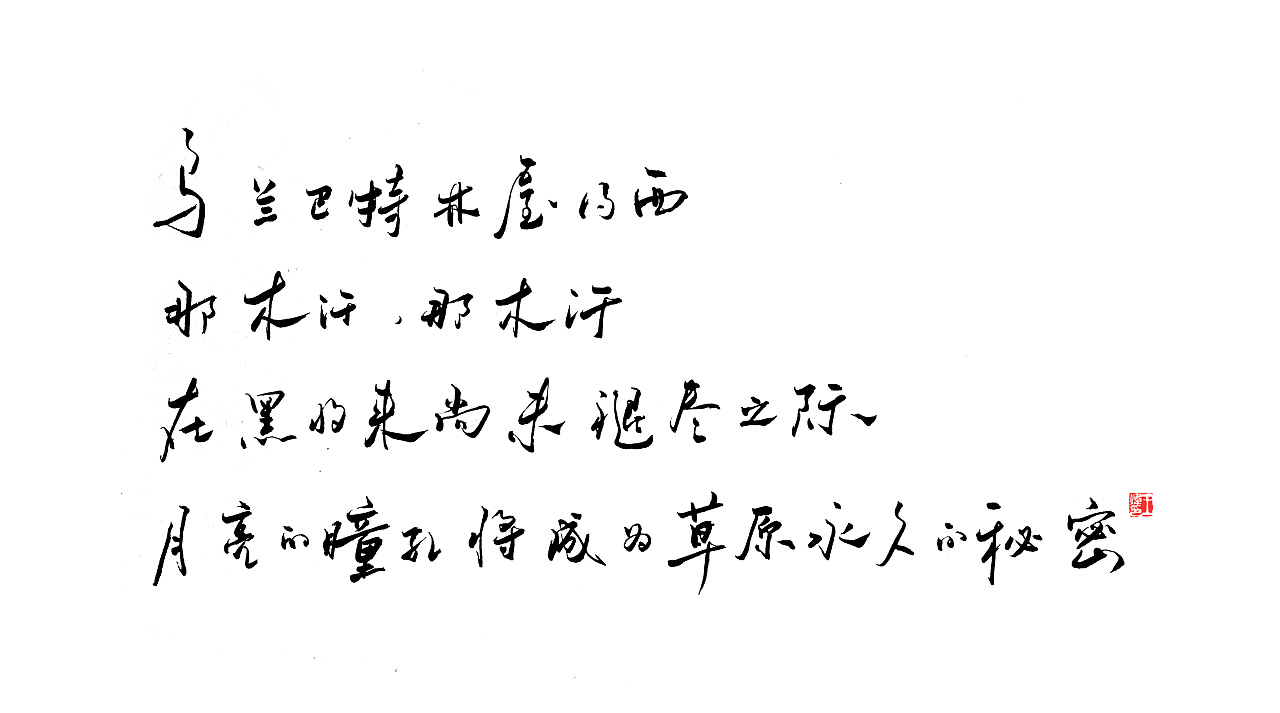 乌兰巴特林屋的西
那木汗，那木汗
在黑的来尚未褪尽之际
月亮的瞳孔将成为草原永久的秘密